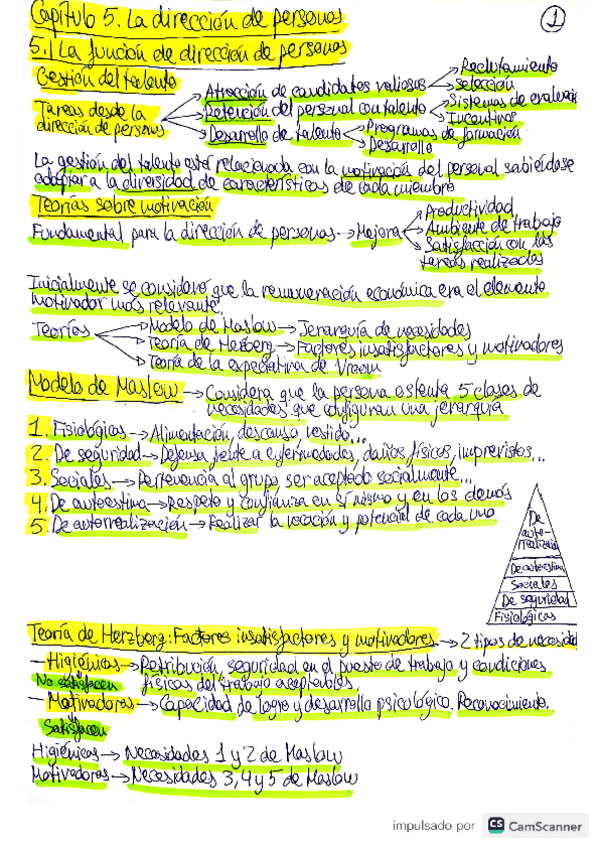 Capítulo 5. La dirección de personas
1
5.1 La función de dirección de personas
Gestión del talento
Tareas desde la dirección de personas
Atracción de candidatos valiosos → Reclutamiento
Selección
Retención del personal con talento → Sistemas de evaluación
Incentivos
Desarrollo de talento → Programas de formación
Desarrollo
La gestión del talento está relacionada con la motivación del personal sabiéndose
adaptar a la diversidad de características de cada miembro
Teorías sobre motivación
Fundamental para la dirección de personas → Mejora
Productividad
Ambiente de trabajo
Satisfacción con las
tareas realizadas
Inicialmente se consideró que la remuneración económica era el elemento
motivador más relevante.
Teorías
Modelo de Maslow → Jerarquía de necesidades
Teoría de Herzberg → Factores insatisfactores y motivadores
Teoría de la expectativa de Vroom
Modelo de Maslow → Considera que la persona ostenta 5 clases de
necesidades que configuran una jerarquía
1. Fisiológicas → Alimentación, descanso, vestido...
2. De seguridad → Defensa frente a enfermedades, daños físicos, imprevistos...
3. Sociales → Pertenencia al grupo ser aceptado socialmente...
4. De autoestima → Respeto y confianza en sí mismo y en los demás
5. De autorrealización → Realizar la vocación y potencial de cada uno
De
auto-
rrealización
De autoestima
Sociales
De seguridad
Fisiológicas
Teoría de Herzberg: Factores insatisfactores y motivadores → 2 tipos de necesidad
- Higiénicas → Retribución, seguridad en el puesto de trabajo y condiciones
No satisfacen físicas del trabajo aceptables.
- Motivadores → Capacidad de logro y desarrollo psicológico. Reconocimiento.
Satisfacen
Higiénicas → Necesidades 1 y 2 de Maslow
Motivadores → Necesidades 3, 4 y 5 de Maslow
impulsado por CS CamScanner